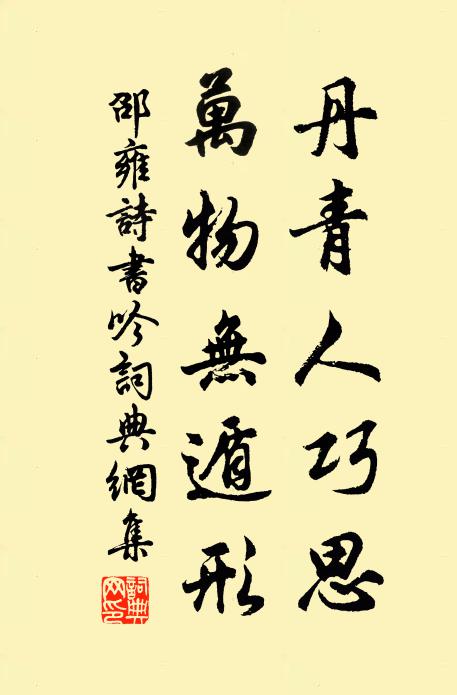 丹青人巧思
萬物無遁形
邵雍詩書吟詞典網集
詞典
网印